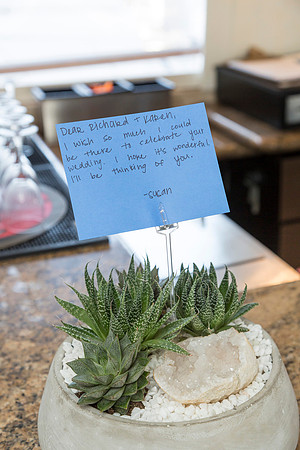 Dear Richard + Karen,
I wish so much I could
be there to celebrate your
wedding. I hope it's wonderful
I'll be thinking of you.
-Susan